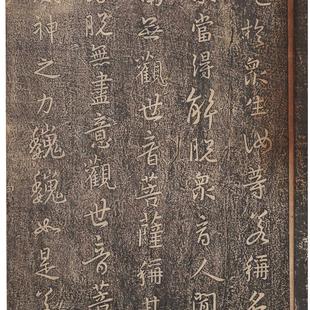 於眾生汝等若稱名
當得解脫眾商人聞
南無觀世音菩薩稱其
脫無盡意觀世音菩
神之力巍巍如是若